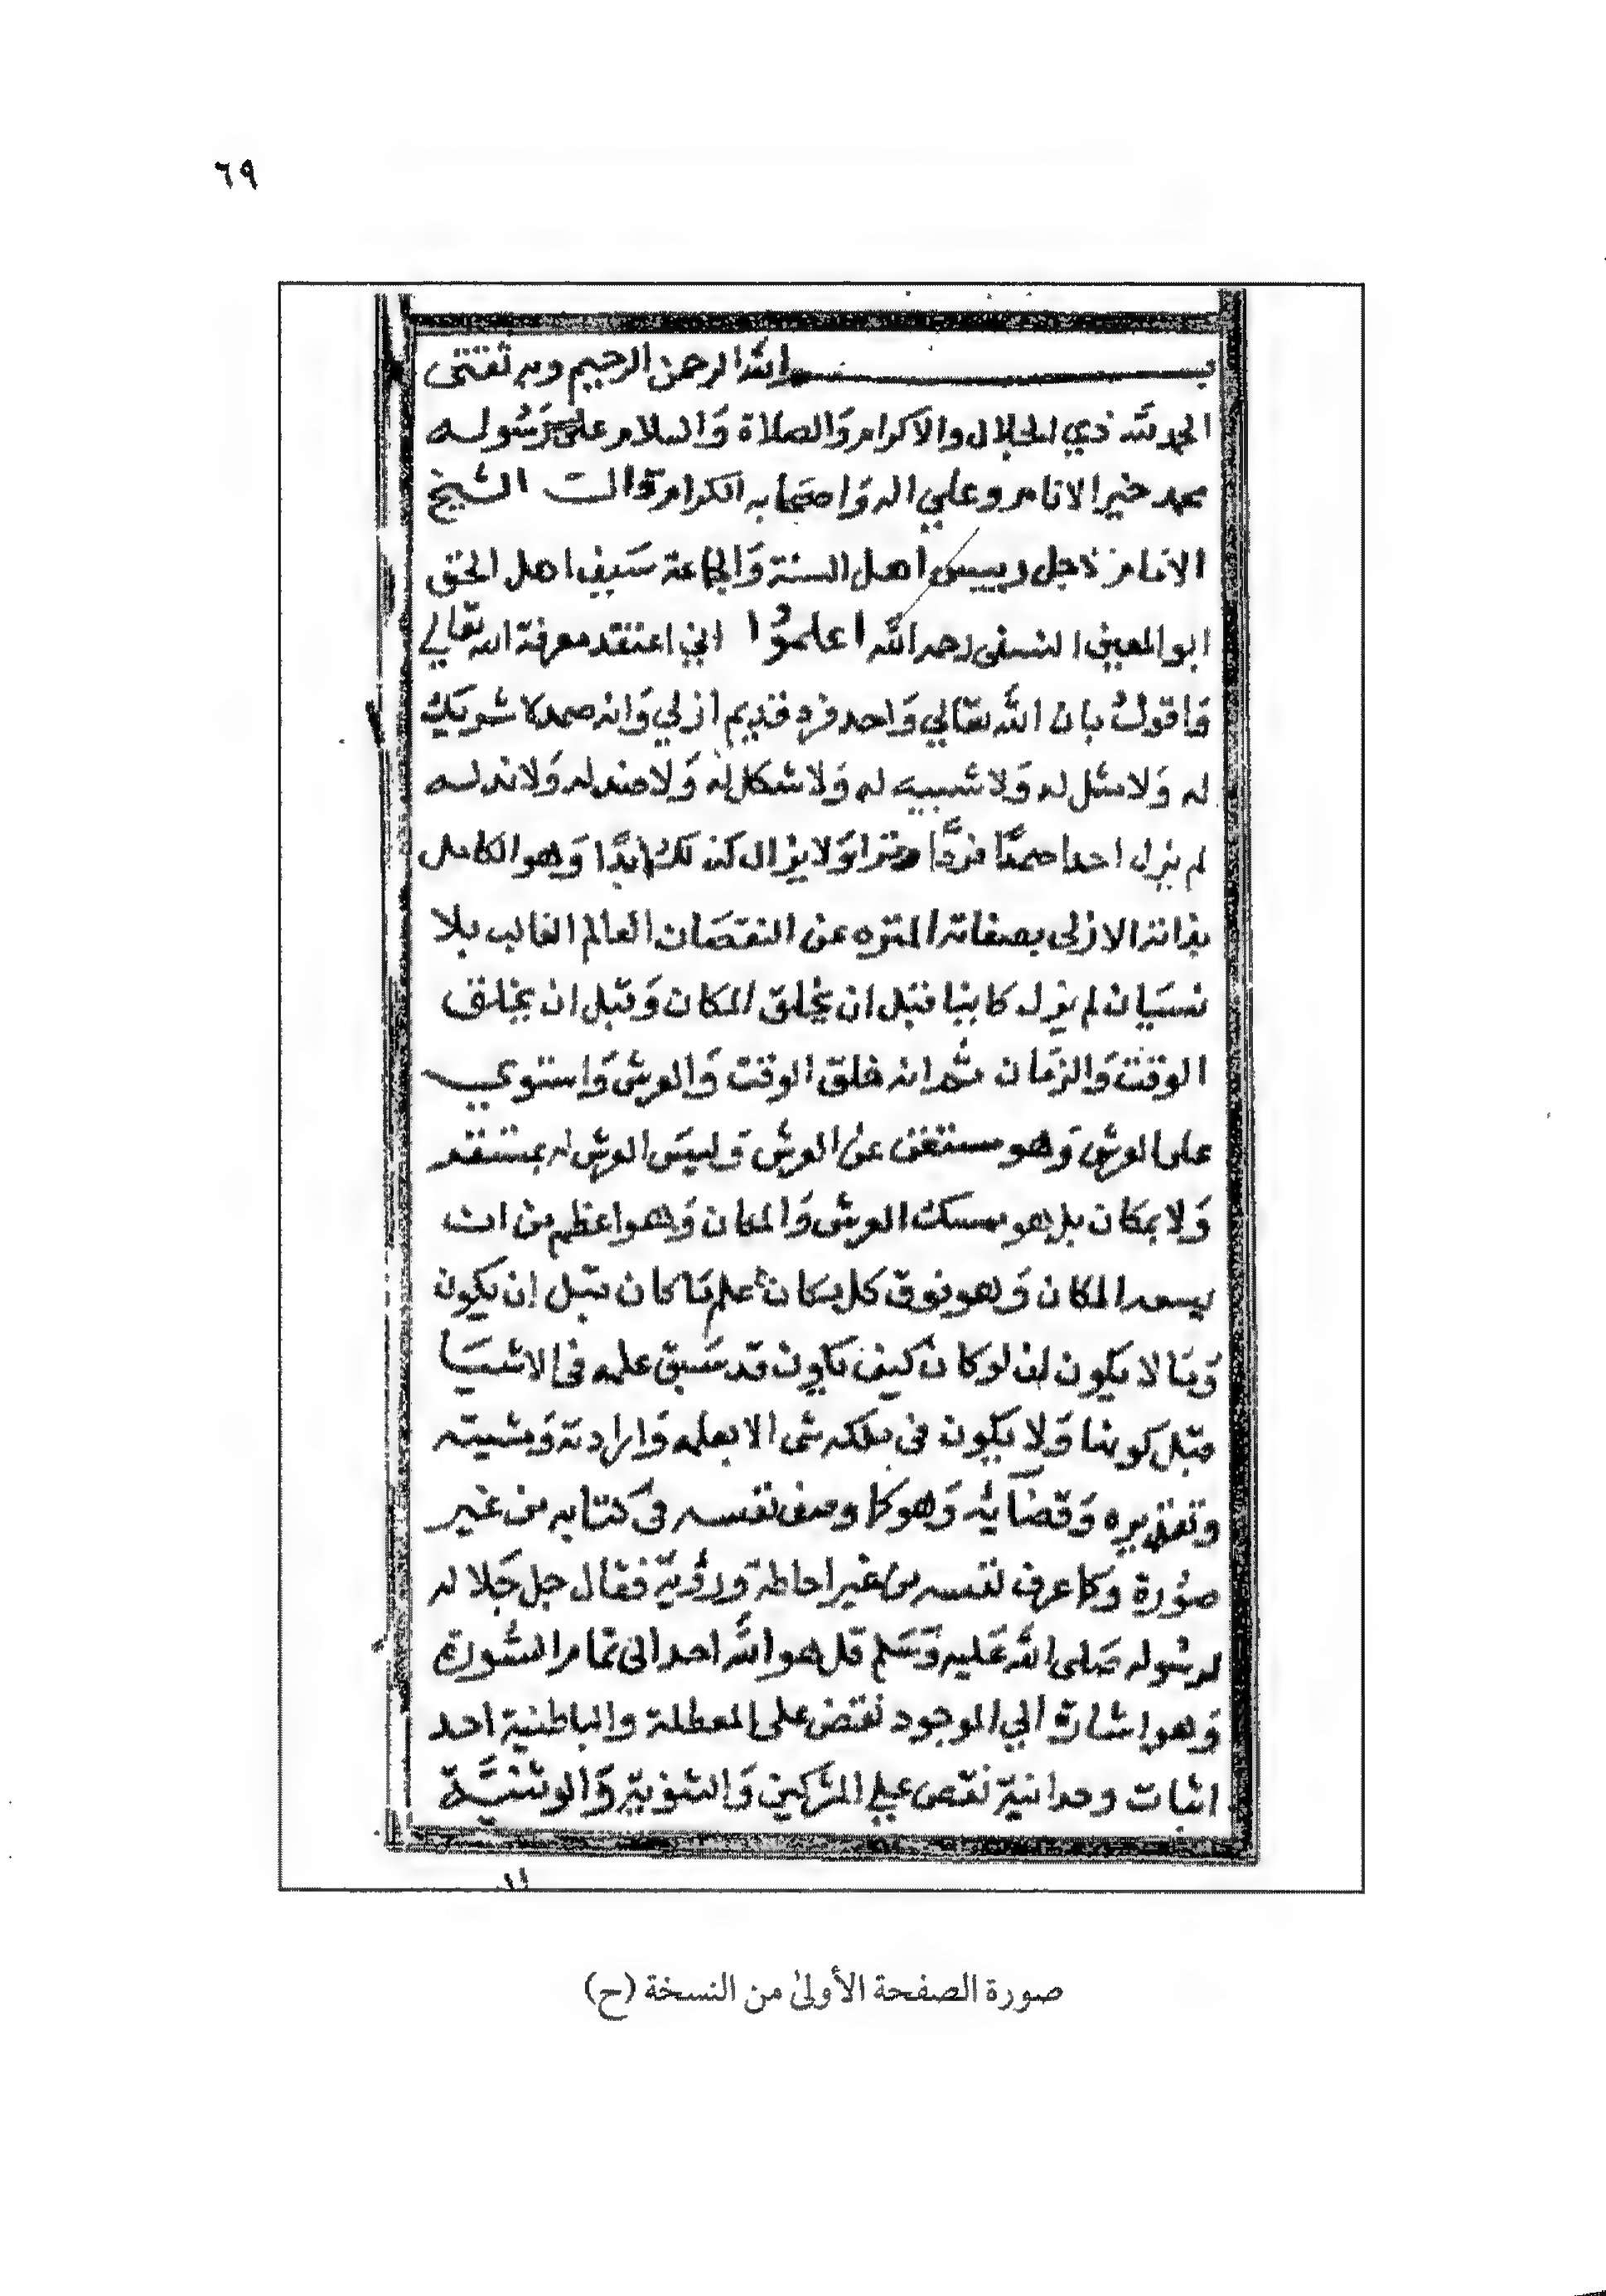 ٦٩
بسم الله الرحمن الرحيم وبه ثقتي
الحمد لله ذي الجلال والاكرام وَالصلاة وَالسلام على رَسُوله
محمد خير الانام وعلي اله وَاصحابه الكرام قال الشيخ
الامام الاجل رييس اهل السنة وَالجماعة سَيف اهل الحق
ابو المعين النسفى رحمه الله اعلموُا اني اعتقد معرفة الله تعالي
وَاقولُ بان الله تعالي وَاحد فرد قديم ازلي وَانه صمد لا شريك
له وَلا مثل له وَلا شبيه له وَلا شكل له وَلا ضد له وَلا ند له
لم يزل احدا صمدًا فردًا وترا وَلا يزال كذلك ابدًا وَهو الكامل
بذاته الازلى بصفاته المنزه عن النقصَان العالم الغالب بلا
نسيَان لم يزل كاينا قبل ان يخلق المكان وَقبل ان يخلق
الوقت وَالزمَان ثم انه خلق الوقت وَالعرش وَاستوي
على العرش وَهو مستغن عن العرش وَليسَ العرش له بمستقر
وَلا بمكان بل هو ممسك العرش وَالمكان وَهو اعظم من ان
يسعه المكان وَهو فوق كل مكان علم مَا كان قبل ان يكون
وَمَا لا يكون ان لو كان كيف يكون قد سَبق علمه فى الاشيَا
قبل كونها وَلا يكون في ملكه شى الا بعلمه وَارادته وَمشيته
وتقديره وَقضَايه وَهو كما وصف نفسه في كتابه من غير
صوُرة وَكما عرف نفسه من غير احاطة ورؤية فقال جل جَلاله
لرسُوله صَلى الله عَليه وَسَلم قل هو الله احد الى تمام السُورة
وَهو اشارة الي الموجود نقض على المعطلة والباطنية احد
اثبات وحدانية نقص علي المشركين وَالثنوية وَالوثنيَّة
صورة الصفحة الأولىٰ من النسخة (ح)